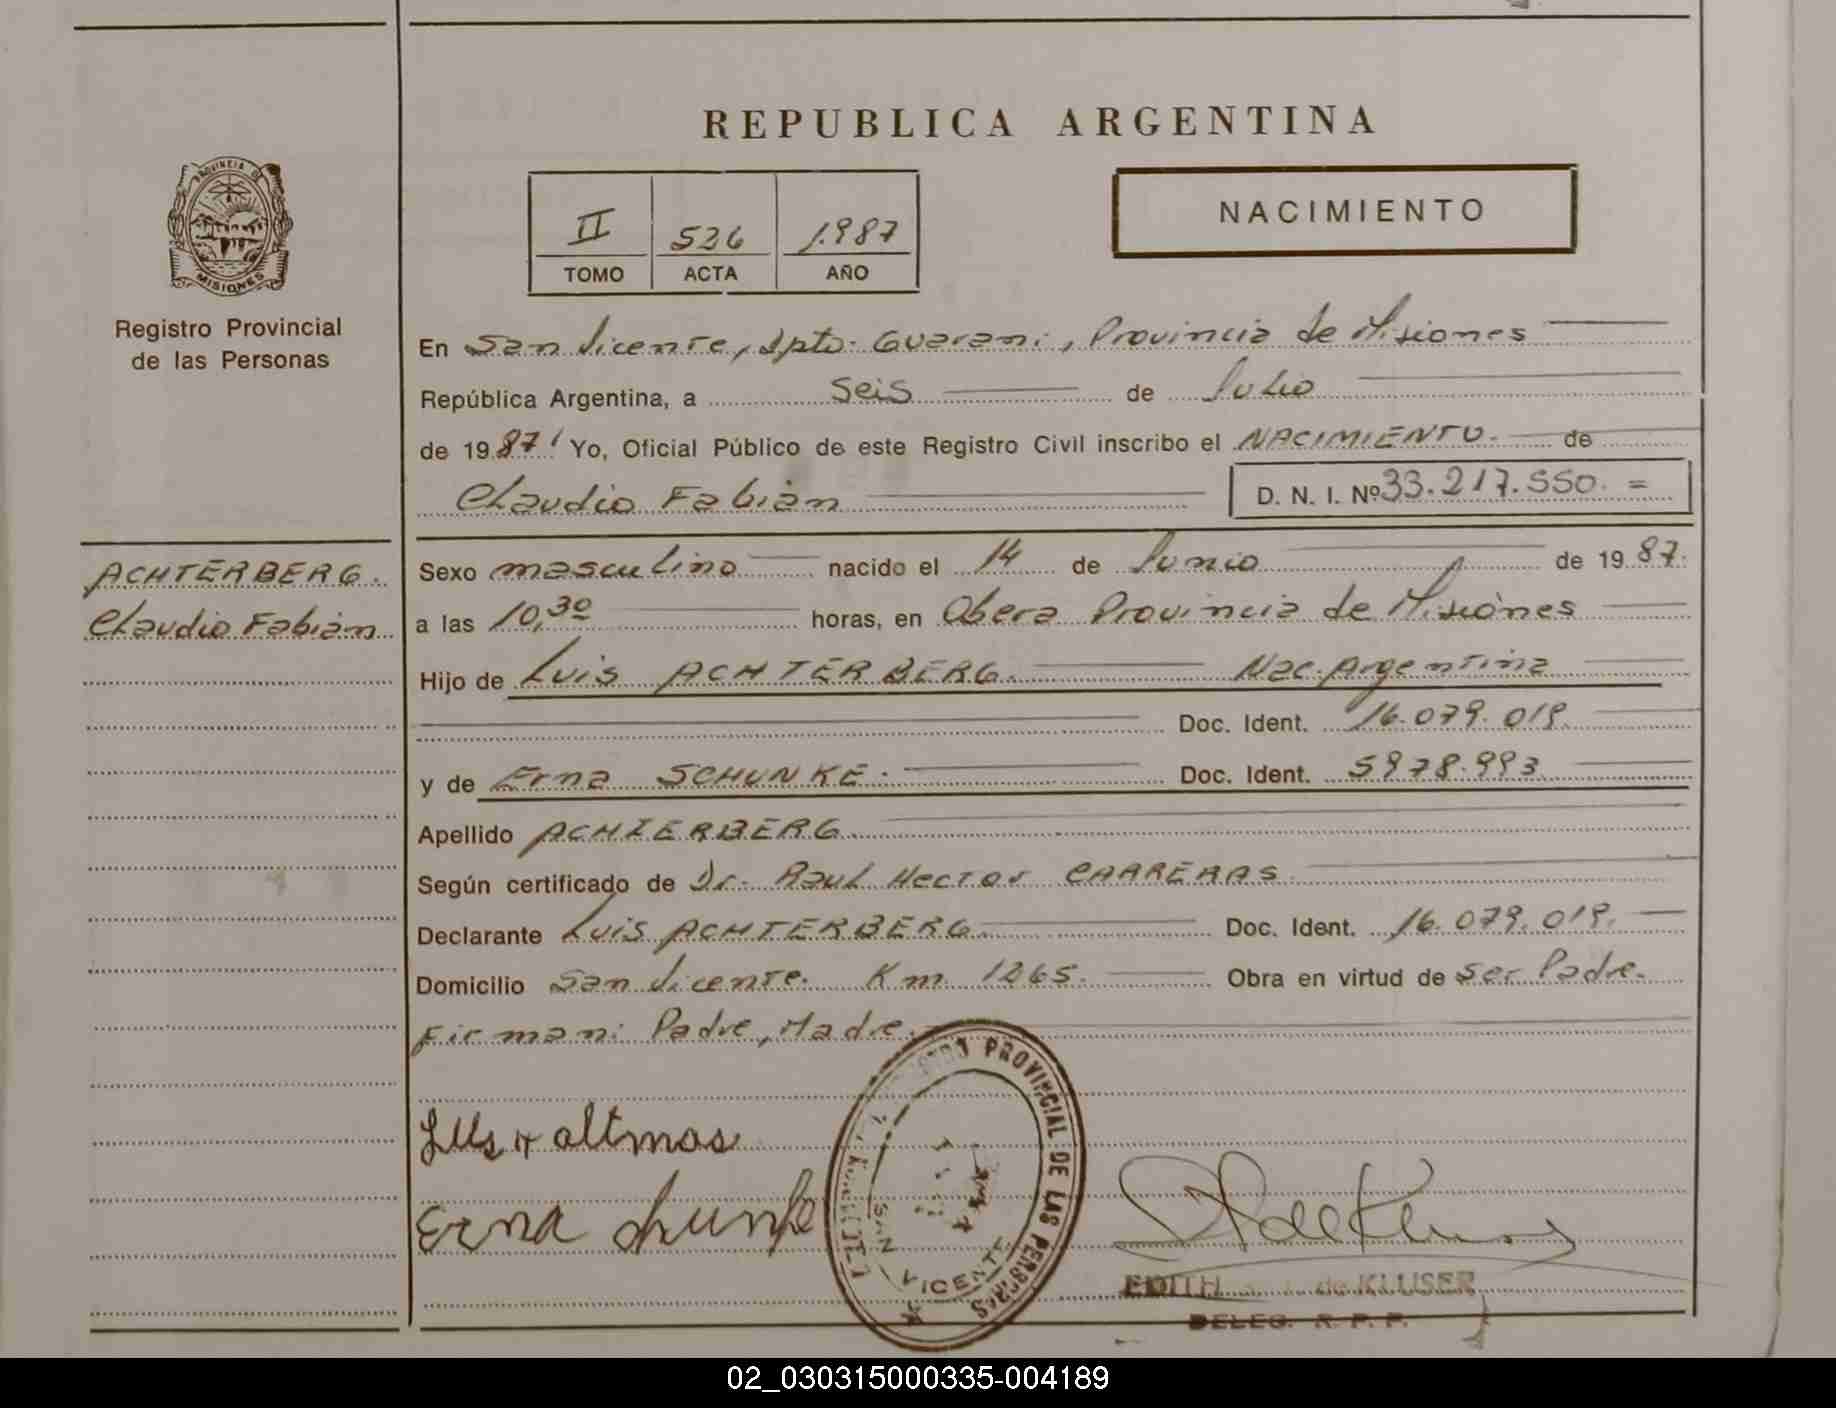 REPUBLICA ARGENTINA
PROVINCIA DE
MISIONES
Registro Provincial
de las Personas
II 526 1.987
TOMO ACTA AÑO
NACIMIENTO
En San Vicente, Dpto. Guarani, Provincia de Misiones
República Argentina, a Seis de Julio
de 19 87 Yo, Oficial Público de este Registro Civil inscribo el NACIMIENTO. de
Claudio Fabián
D. N. I. Nº 33.217.550. =
ACHTERBERG.
Claudio Fabián
Sexo masculino nacido el 14 de Junio de 19 87.
a las 10,30 horas, en Obera Provincia de Misiones
Hijo de Luis ACHTERBERG. Nac. Argentina
Doc. Ident. 16.079.019.
y de Erna SCHUNKE. Doc. Ident. 5978.993
Apellido ACHTERBERG.
Según certificado de Dr. Raul Hector CARRERAS.
Declarante Luis ACHTERBERG. Doc. Ident. 16.079.019.
Domicilio San Vicente. Km. 1265. Obra en virtud de Ser Padre.
Firman: Padre, Madre.
Erna
PROVINCIAL DE LAS PERSONAS
SAN VICENTE
EDITH de KLUSER
DELEG. R. P. P.
02_030315000335-004189